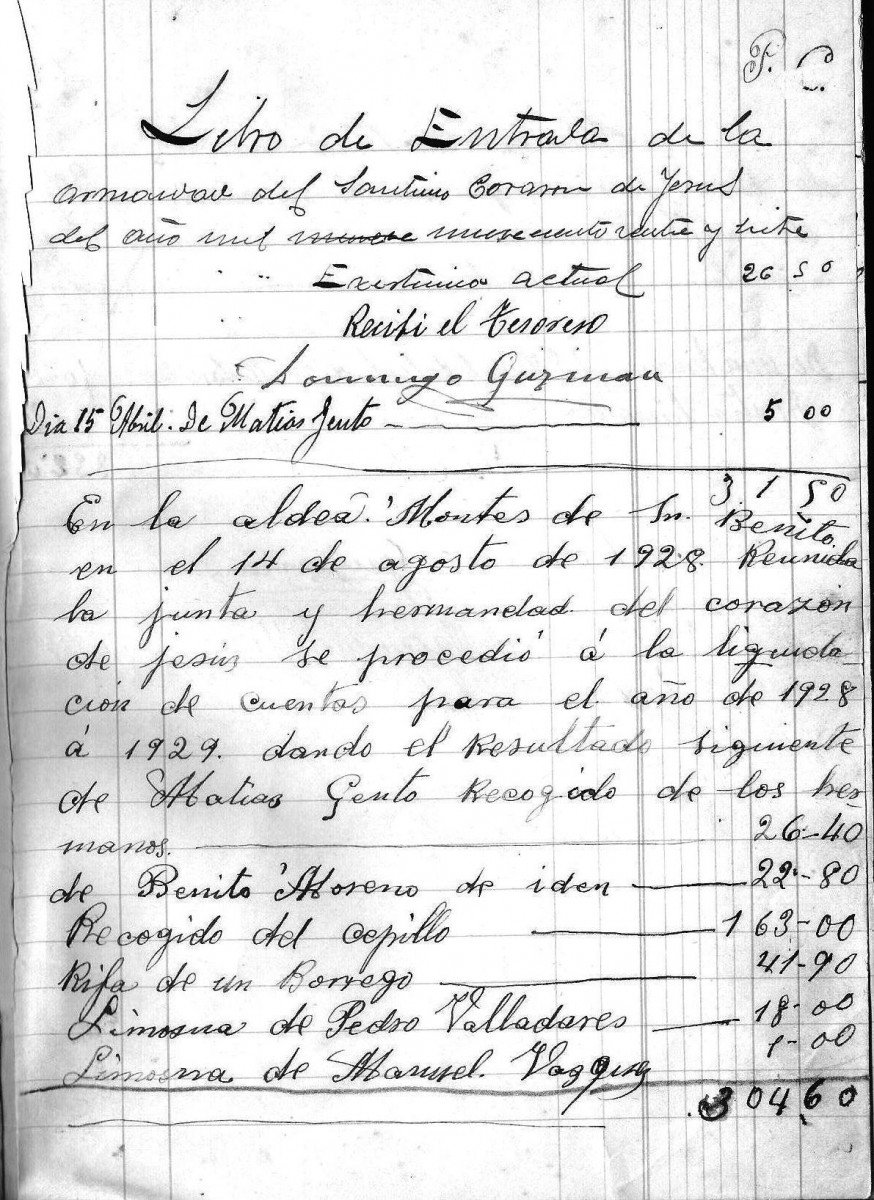 P. C.
Libro de Entrada de la
armandad del Santisimo Corazon de Jesus
del año mil nueveciento veinte y siete
" Existencia actual 26 50
Recibi el Tesorero
Domingo Guzman
Dia 15 Abril. De Matias Jento 5 00
31 50
En la aldea Montes de Sn. Benito.
en el 14 de agosto de 1928. Reunida
la junta y hermandad del corazón
de jesús se procedió á la liquida-
ción de cuentas para el año de 1928
á 1929. dando el Resultado siguiente
de Matias Gento Recogido de los her-
manos. 26-40
de Benito Moreno de iden 22-80
Recogido del cepillo 163-00
Rifa de un Borrego 41-90
Limosna de Pedro Valladares 18-00
Limosna de Manuel. Vazquez 1-00
304 60